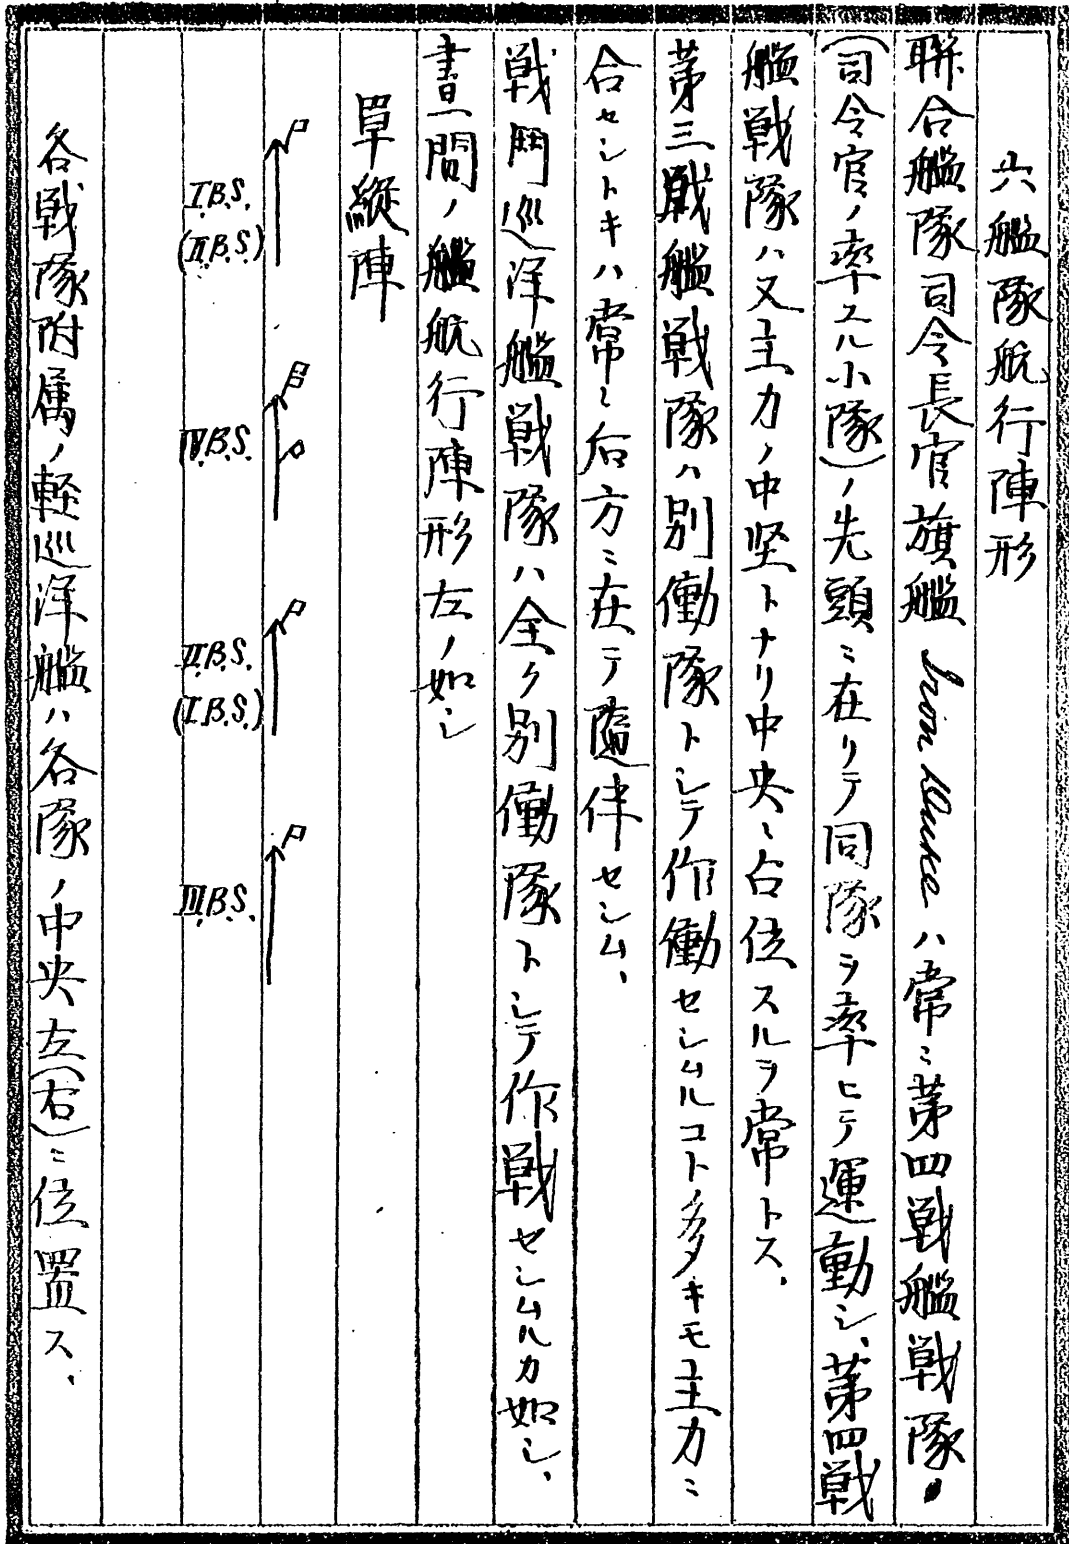 六艦隊航行陣形
聯合艦隊司令長官旗艦 Iron Duke ハ常ニ第四戦艦戦隊
(司令官ノ率エル小隊)ノ先頭ニ在リテ同隊ヲ率ヒテ運動シ、第四戦
艦戦隊ハ又主力ノ中堅トナリ中央ニ占位スルヲ常トス、
第三戦艦戦隊ハ別働隊トシテ作働セシムルコト多キモ主力ニ
合セントキハ常ニ后方ニ在テ随伴セシム、
戦鬥巡洋艦戦隊ハ全ク別働隊トシテ作戦セシムルカ如シ、
晝間ノ艦航行陣形左ノ如シ
単縦陣
I.B.S.
(II.B.S.)
IV.B.S.
II.B.S.
(I.B.S.)
III.B.S.
各戦隊附属ノ軽巡洋艦ハ各隊ノ中央左(右)ニ位置ス、